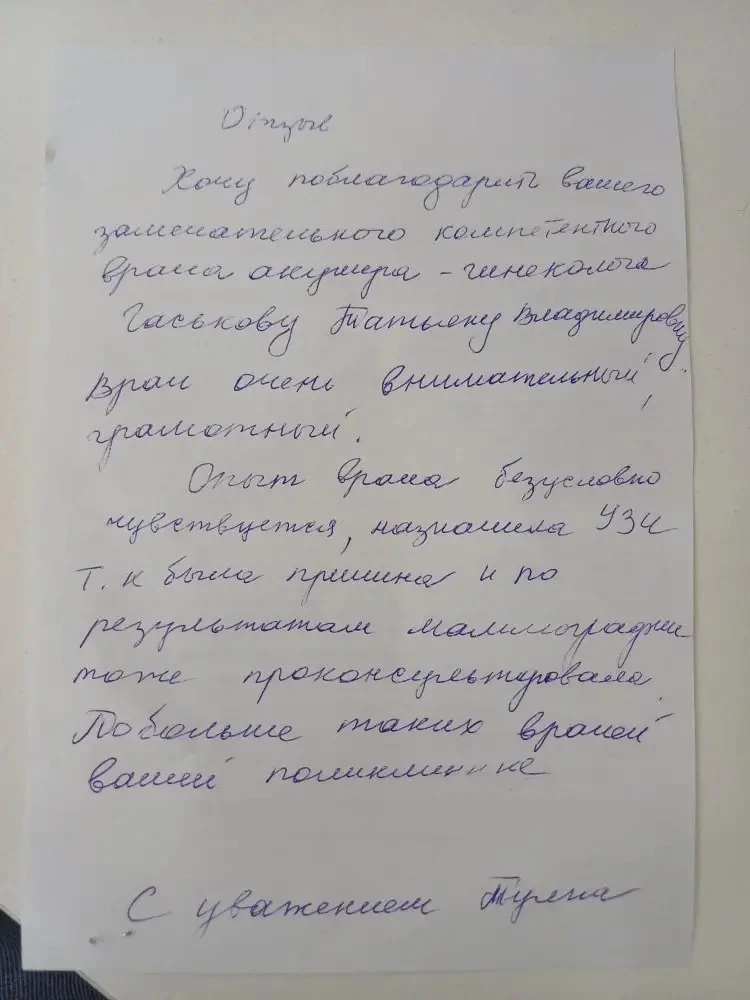 Отзыв
Хочу поблагодарить вашего
замечательного компетентного
врача акушера - гинеколога
Гаськову Татьяну Владимировну.
Врач очень внимательный,
грамотный.
Опыт врача безусловно
чувствуется, назначила УЗИ
т. к была причина и по
результатам маммографии
тоже проконсультировала.
Побольше таких врачей
вашей поликлинике
С уважением